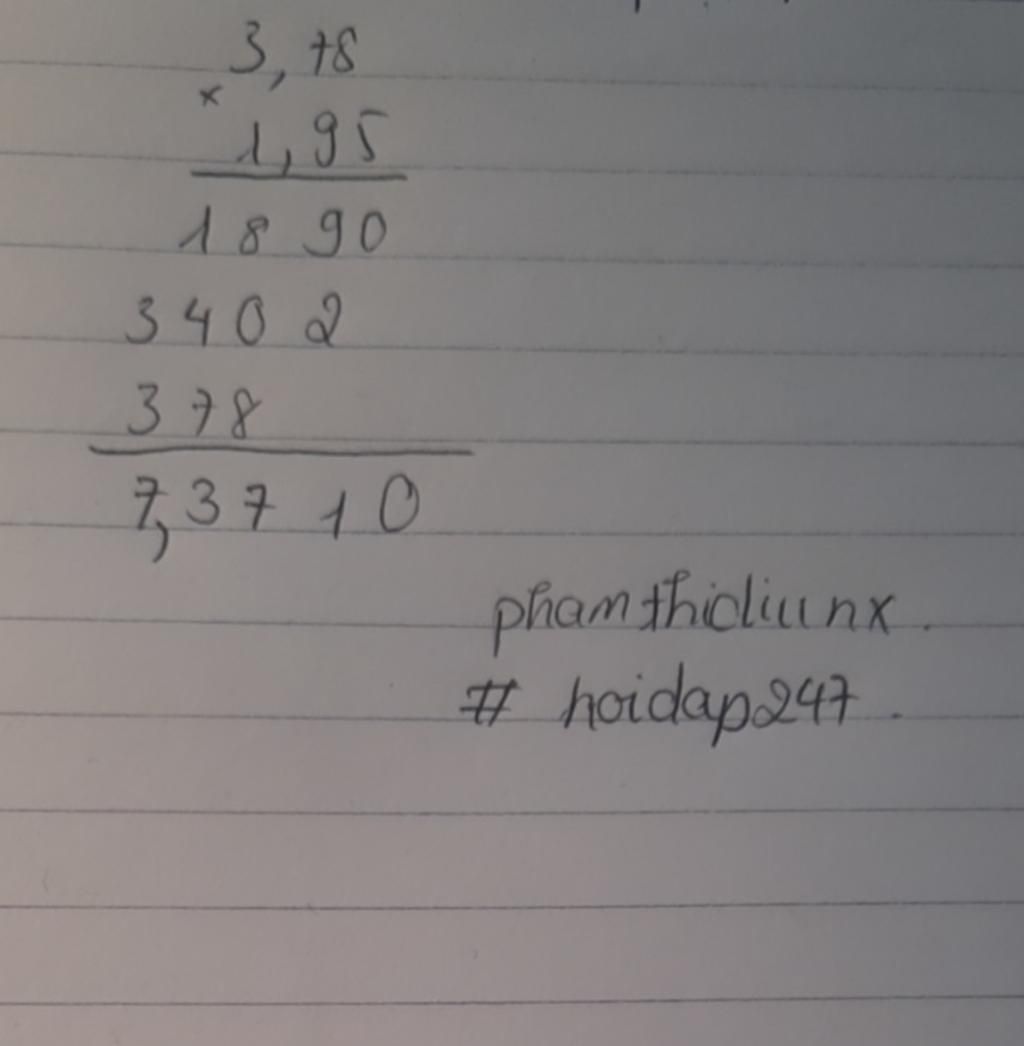 3,78
×
1,95
1890
3402
378
7,3710
phamthidiiunx.
# hoidap247.